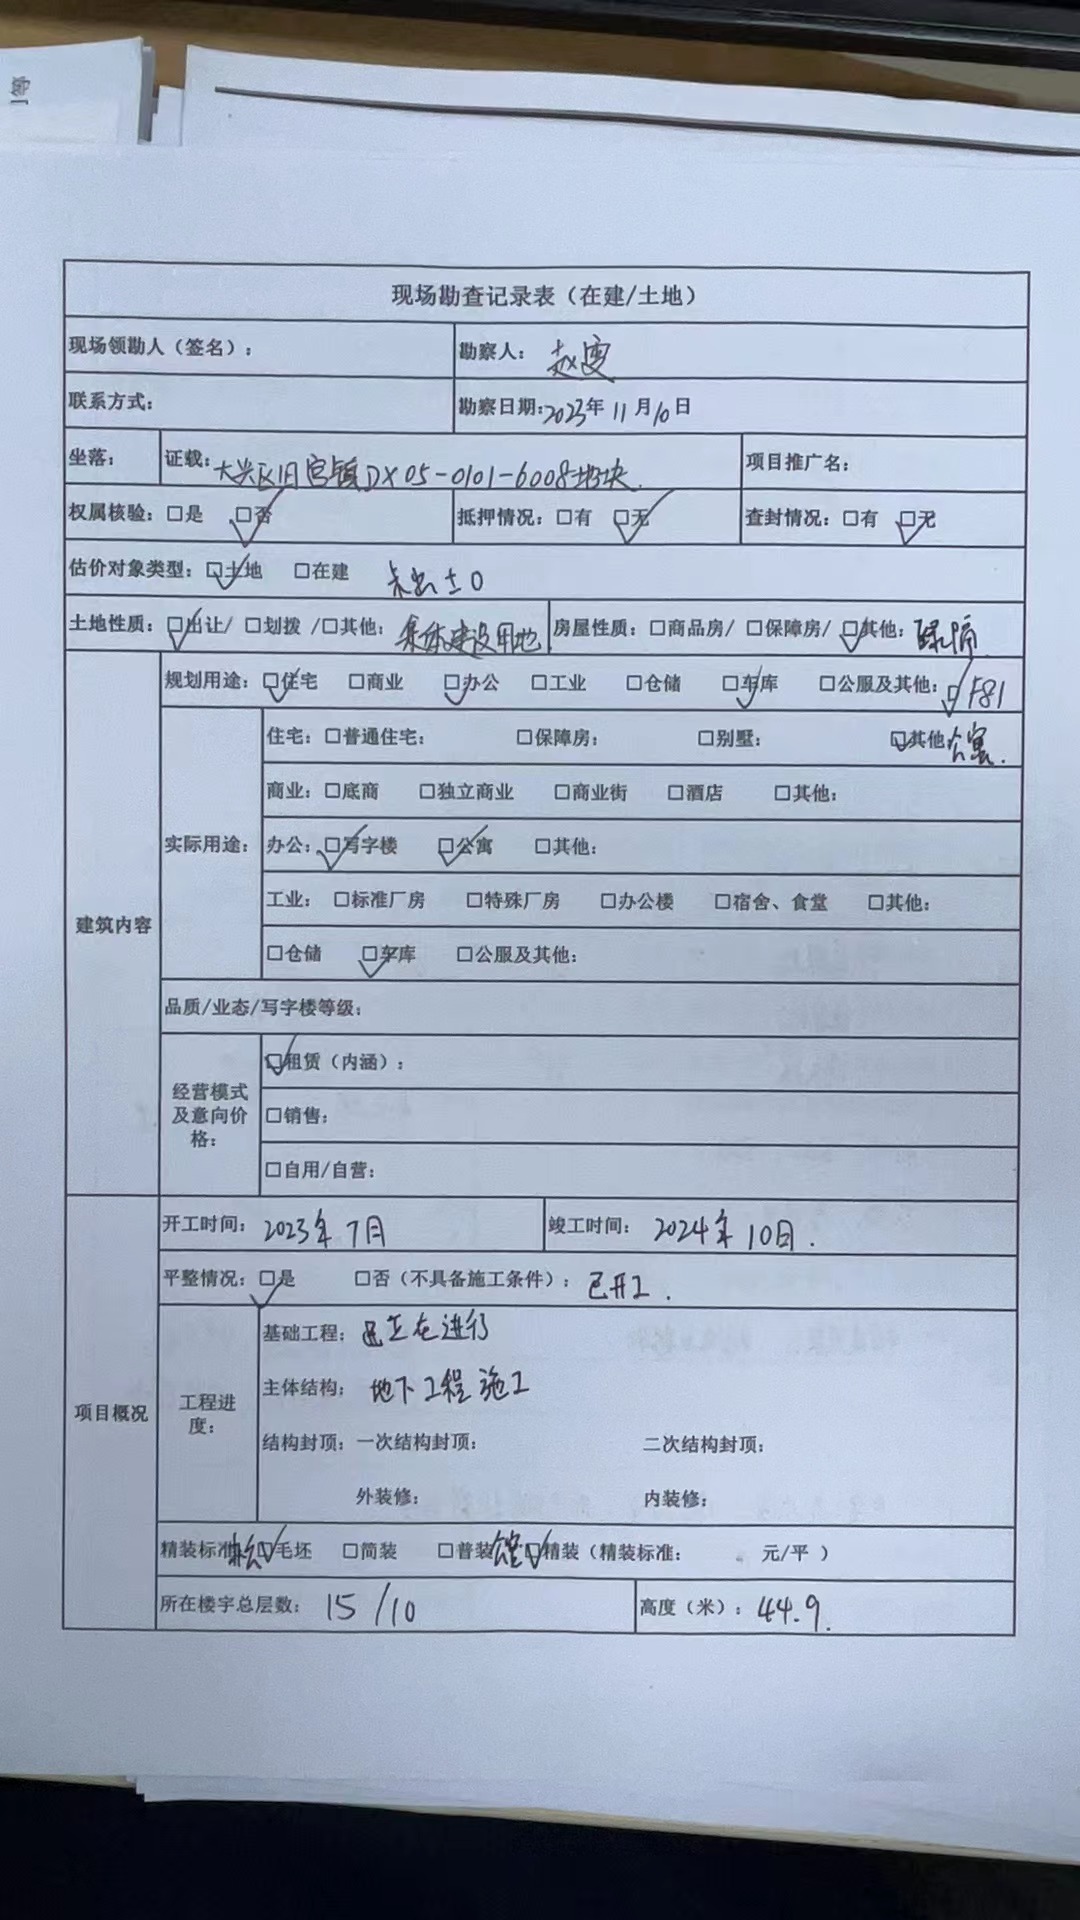 现场勘查记录表（在建/土地）
现场领勘人（签名）：
勘察人：赵
联系方式：
勘察日期：2023年 11月10日
坐落：
证载：大兴区旧宫镇DX05-0101-6008地块
项目推广名：
权属核验：□是 □否
抵押情况：□有 □无
查封情况：□有 □无
估价对象类型：□土地 □在建 未出±0
土地性质：□出让/ □划拨 /□其他：集体建设用地
房屋性质：□商品房/ □保障房/ □其他：
建筑内容
规划用途：□住宅 □商业 □办公 □工业 □仓储 □车库 □公服及其他：F81
实际用途：
住宅：□普通住宅： □保障房： □别墅： □其他 公寓.
商业：□底商 □独立商业 □商业街 □酒店 □其他：
办公：□写字楼 □公寓 □其他：
工业：□标准厂房 □特殊厂房 □办公楼 □宿舍、食堂 □其他：
□仓储 □车库 □公服及其他：
品质/业态/写字楼等级：
经营模式
及意向价
格：
□租赁（内涵）：
□销售：
□自用/自营：
项目概况
开工时间：2023年7月
竣工时间：2024年10日.
平整情况：□是 □否（不具备施工条件）：已开工.
工程进
度：
基础工程：正在进行
主体结构：地下工程施工
结构封顶：一次结构封顶： 二次结构封顶：
外装修： 内装修：
精装标准 □毛坯 □简装 □普装 □精装（精装标准： 元/平 ）
所在楼宇总层数：15/10
高度（米）：44.9.